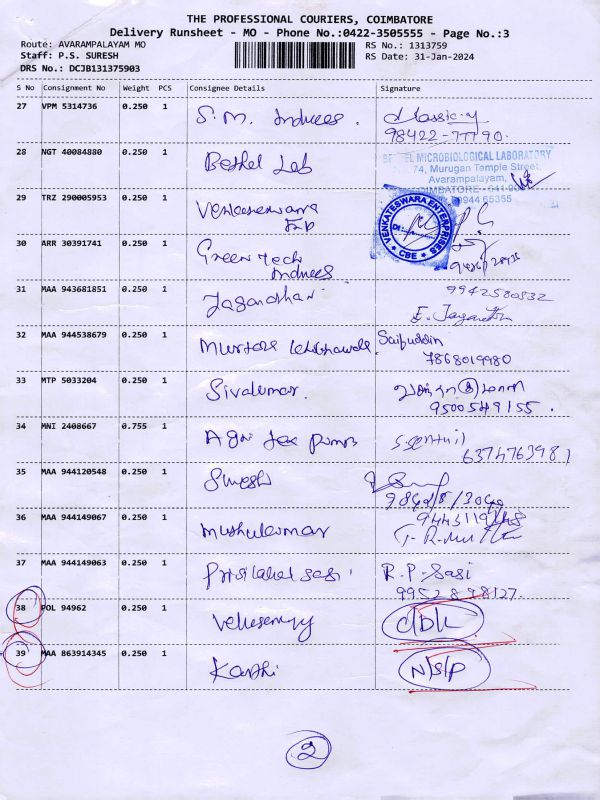 THE PROFESSIONAL COURIERS, COIMBATORE
Delivery Runsheet - MO - Phone No.:0422-3505555 - Page No.:3
Route: AVARAMPALAYAM MO
RS No.: 1313759
Staff: P.S. SURESH
RS Date: 31-Jan-2024
DRS No.: DCJB131375903
S No Consignment No Weight PCS Consignee Details Signature
27 VPM 5314736 0.250 1 S.M. Indnees. classic.y
98422-77790.
28 NGT 40084880 0.250 1 Bethel Lab
MICROBIOLOGICAL LABORATORY
74, Murugan Temple Street,
Avarampalayam,
29 TRZ 290005953 0.250 1 Venkateswara
VENKATESWARA ENTERPRISES
CBE
30 ARR 30391741 0.250 1 Green tech
Indnees
31 MAA 943681851 0.250 1 Jagandhar
9942580832
E. Jagan
32 MAA 944538679 0.250 1 Saifuddin
7868019980
33 MTP 5033204 0.250 1 Sivakumar.
9500549155.
34 MNI 2408667 0.755 1 Agni Tex Pumps S. Senthil
637476398
35 MAA 944120548 0.250 1 Suresh
36 MAA 944149067 0.250 1 Muthukumar
37 MAA 944149063 0.250 1 R.P-Sasi
9952898127.
38 POL 94962 0.250 1 Velusamy C/D/L
39 MAA 863914345 0.250 1 Kanthi N/S/P
2